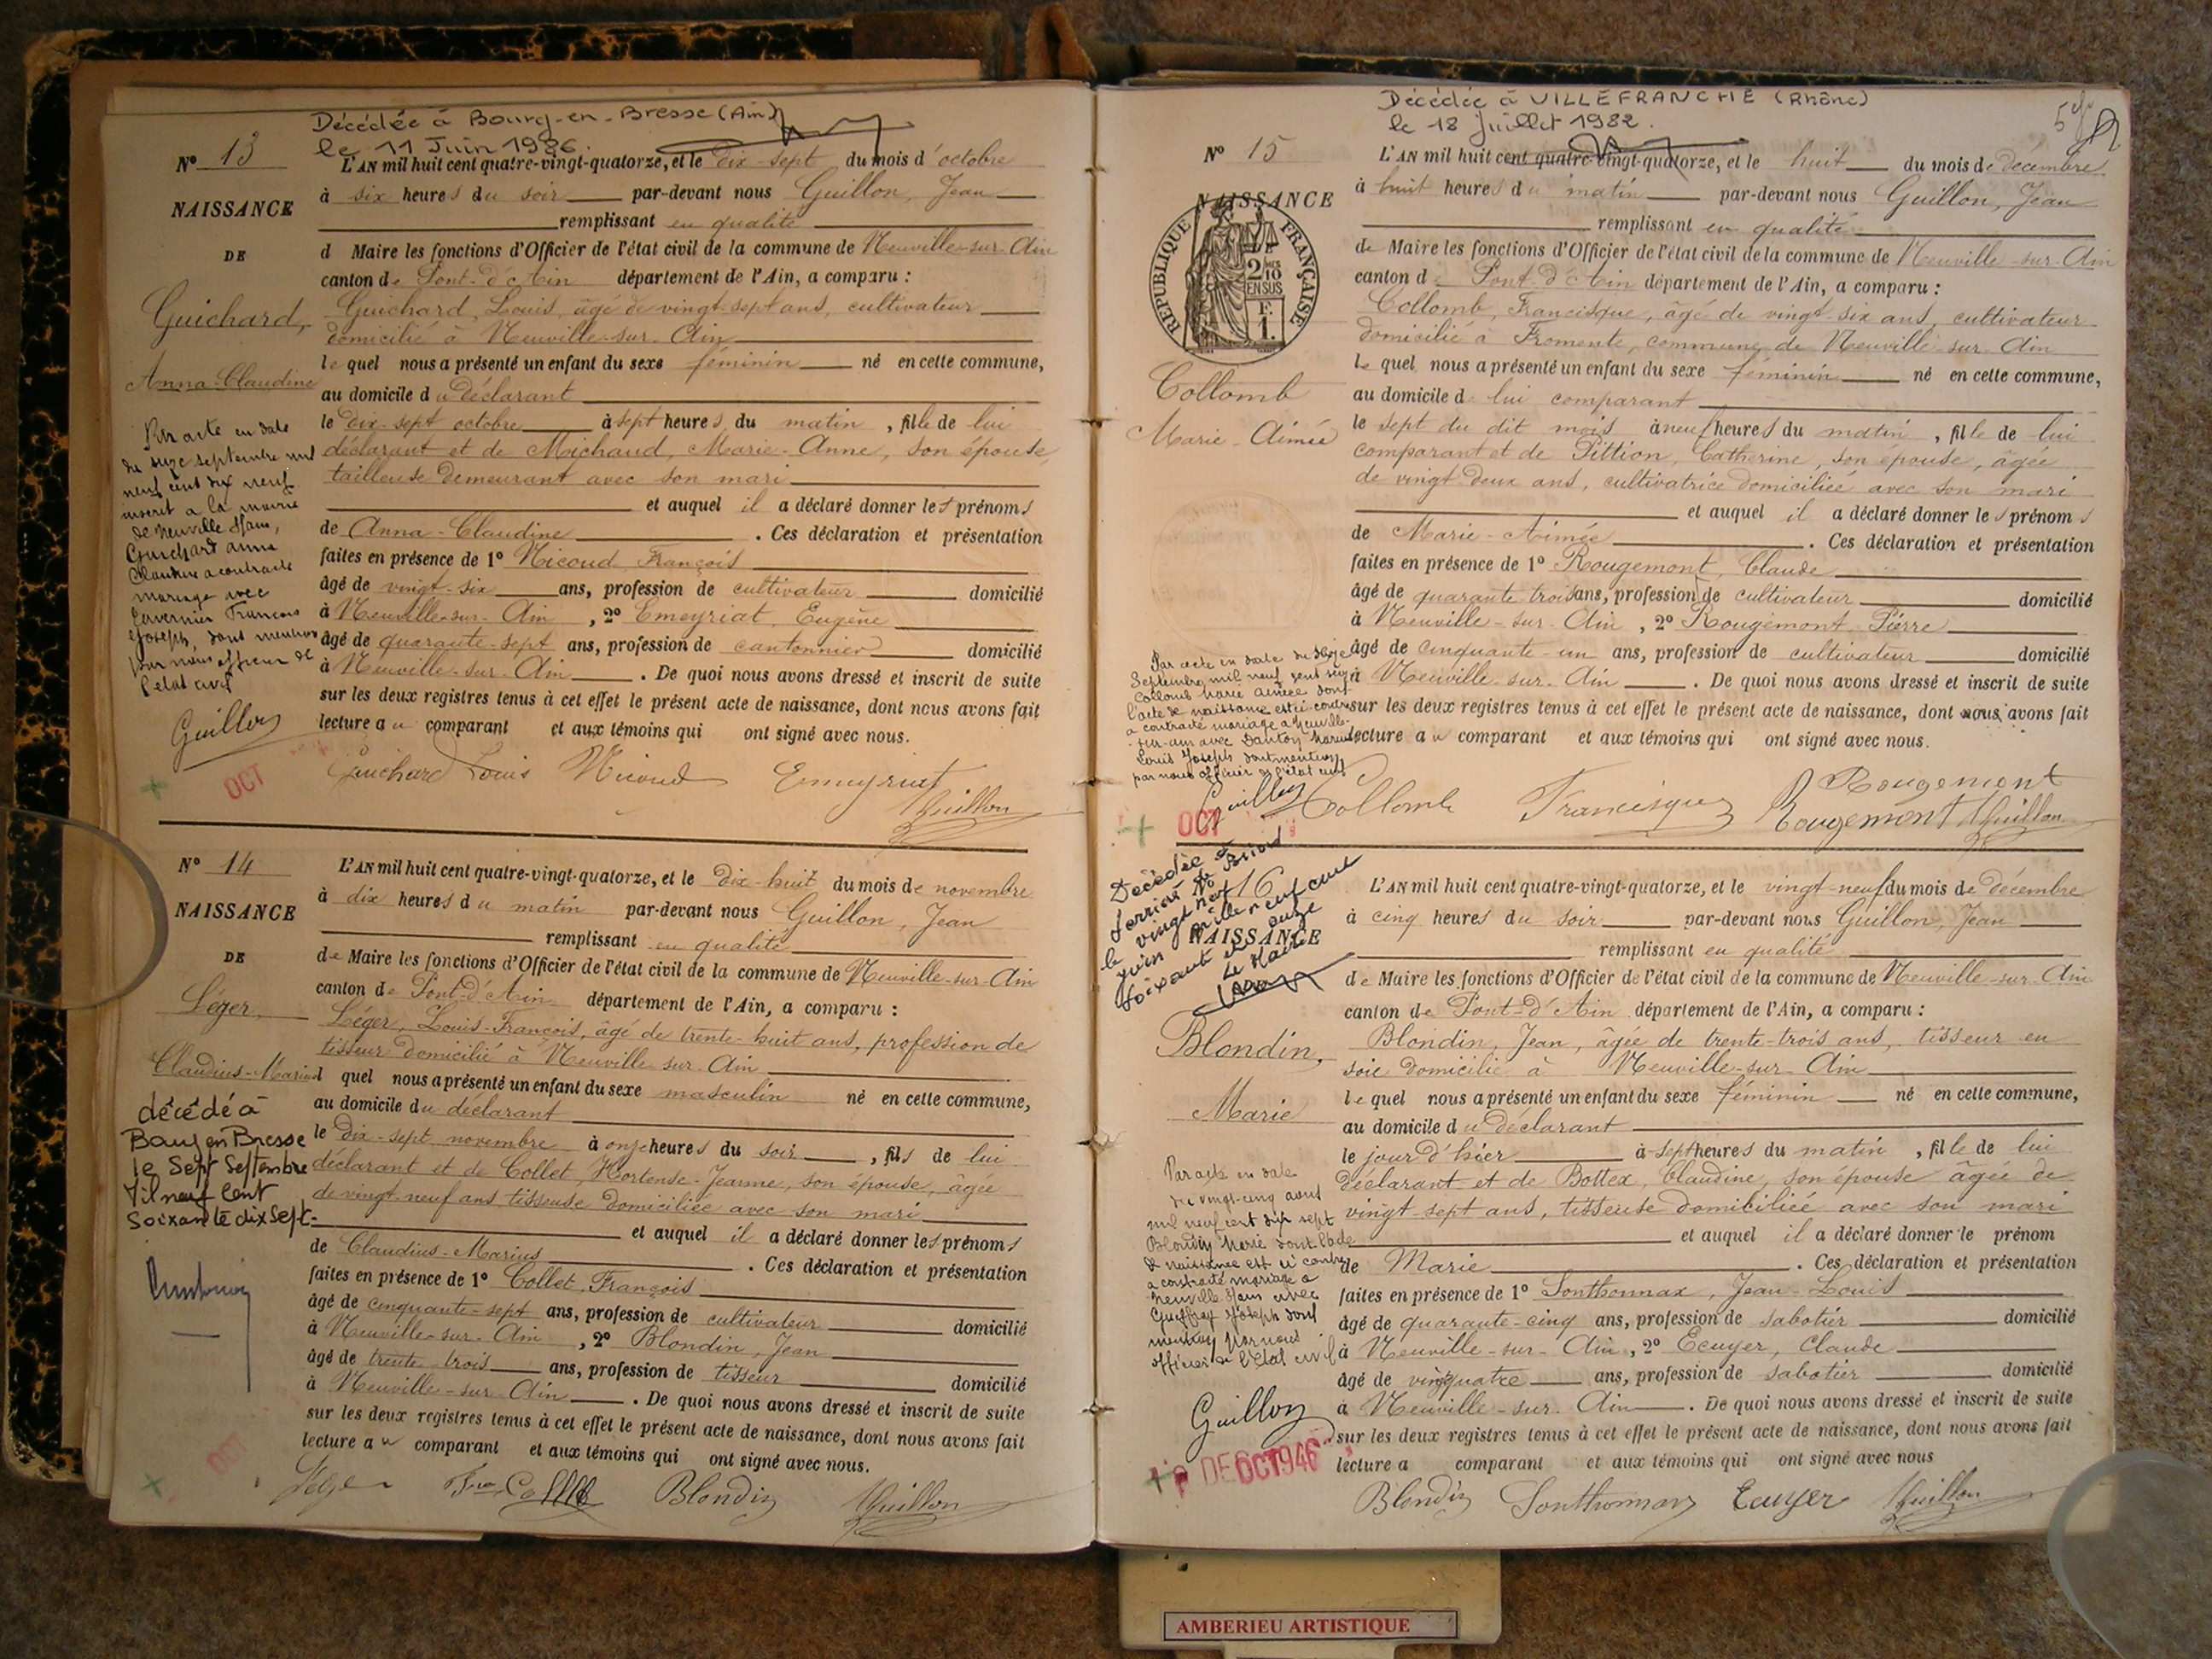 Décédée à Bourg-en-Bresse (Ain)
le 11 Juin 1986.
N° 13
NAISSANCE
DE
Guichard,
Anna-Claudine
Par acte en date
du seize septembre mil
neuf cent dix neuf
inscrit a la mairie
de Neuville s/ain,
Guichard anna
Claudine a contracté
mariage avec
François
Joseph, dont mention
par nous officier de
l'état civil
Guillon
OCT
L'AN mil huit cent quatre-vingt-quatorze, et le dix-sept du mois d'octobre
à six heures du soir par-devant nous Guillon, Jean
remplissant en qualité
d Maire les fonctions d'Officier de l'état civil de la commune de Neuville-sur-Ain
canton de Pont-d'Ain département de l'Ain, a comparu :
Guichard, Louis, âgé de vingt-sept ans, cultivateur
domicilié à Neuville-sur-Ain
lequel nous a présenté un enfant du sexe féminin né en cette commune,
au domicile du déclarant
le dix-sept octobre à sept heures du matin, fille de lui
déclarant et de Michaud, Marie-Anne, son épouse,
tailleuse demeurant avec son mari
et auquel il a déclaré donner les prénoms
de Anna-Claudine. Ces déclaration et présentation
faites en présence de 1° Nicoud, François
âgé de vingt-six ans, profession de cultivateur domicilié
à Neuville-sur-Ain, 2° Emeyriat, Eugène
âgé de quarante-sept ans, profession de cantonnier domicilié
à Neuville-sur-Ain. De quoi nous avons dressé et inscrit de suite
sur les deux registres tenus à cet effet le présent acte de naissance, dont nous avons fait
lecture au comparant et aux témoins qui ont signé avec nous.
Guichard Louis Nicoud Emeyriat
Guillon
N° 14
NAISSANCE
DE
Léger
Claudius-Marius
décédé à
Bourg en Bresse
le Sept Septembre
Mil neuf Cent
Soixante dix Sept.
OCT
L'AN mil huit cent quatre-vingt-quatorze, et le dix-huit du mois de novembre
à dix heures du matin par-devant nous Guillon, Jean
remplissant en qualité
de Maire les fonctions d'Officier de l'état civil de la commune de Neuville-sur-Ain
canton de Pont-d'Ain département de l'Ain, a comparu :
Léger, Louis-François, âgé de trente-huit ans, profession de
tisseur domicilié à Neuville sur Ain
l quel nous a présenté un enfant du sexe masculin né en cette commune,
au domicile du déclarant
le dix-sept novembre à onze heures du soir, fils de lui
déclarant et de Collet, Hortense-Jeanne, son épouse, âgée
de vingt-neuf ans tisseuse domiciliée avec son mari
et auquel il a déclaré donner les prénoms
de Claudius-Marius. Ces déclaration et présentation
faites en présence de 1° Collet, François
âgé de cinquante-sept ans, profession de cultivateur domicilié
à Neuville-sur-Ain, 2° Blondin, Jean
âgé de trente-trois ans, profession de tisseur domicilié
à Neuville-sur-Ain. De quoi nous avons dressé et inscrit de suite
sur les deux registres tenus à cet effet le présent acte de naissance, dont nous avons fait
lecture au comparant et aux témoins qui ont signé avec nous.
Léger Blondin Guillon
Décédée à VILLEFRANCHE (Rhône)
le 18 juillet 1982.
N° 15
NAISSANCE
DE
REPUBLIQUE FRANÇAISE
2/10 EN SUS
F. 1.
Collomb
Marie-Aimée
Par acte en date du seize
Septembre mil neuf cent
Collomb Marie Aimée dont
l'acte de naissance est ci contre
a contracté mariage a Neuville-
-sur-ain avec
Louis Joseph dont mention
par nous officier de l'état civil
Guillon
OCT
L'AN mil huit cent quatre-vingt-quatorze, et le huit du mois de décembre
à huit heures du matin par-devant nous Guillon, Jean
remplissant en qualité
de Maire les fonctions d'Officier de l'état civil de la commune de Neuville-sur-Ain
canton de Pont-d'Ain département de l'Ain, a comparu :
Collomb, Francisque, âgé de vingt-six ans, cultivateur
domicilié à Fromente, commune de Neuville sur Ain
lequel nous a présenté un enfant du sexe féminin né en cette commune,
au domicile de lui comparant
le sept du dit mois à neuf heures du matin, fille de lui
comparant et de Pittion, Catherine, son épouse, âgée
de vingt deux ans, cultivatrice domiciliée avec son mari
et auquel il a déclaré donner les prénoms
de Marie-Aimée. Ces déclaration et présentation
faites en présence de 1° Rougemont, Claude
âgé de quarante trois ans, profession de cultivateur domicilié
à Neuville-sur-Ain, 2° Rougemont, Pierre
âgé de cinquante-un ans, profession de cultivateur domicilié
à Neuville-sur-Ain. De quoi nous avons dressé et inscrit de suite
sur les deux registres tenus à cet effet le présent acte de naissance, dont nous avons fait
lecture au comparant et aux témoins qui ont signé avec nous.
Collomb Francisque Rougemont
Rougemont Guillon
N° 16
NAISSANCE
Décédée
le vingt neuf
juin mille neuf cent
soixante et onze
Le Maire
Blondin,
Marie
Par acte en date
du vingt-cinq aout
mil neuf cent dix sept
Blondin Marie dont l'acte
de naissance est ci contre
a contracté mariage a
Neuville s/ain avec
Joseph dont
mention par nous
officier de l'état civil
Guillon
DE OCT 1946
L'AN mil huit cent quatre-vingt-quatorze, et le vingt-neuf du mois de décembre
à cinq heures du soir par-devant nous Guillon, Jean
remplissant en qualité
de Maire les fonctions d'Officier de l'état civil de la commune de Neuville-sur-Ain
canton de Pont-d'Ain département de l'Ain, a comparu :
Blondin, Jean, âgée de trente-trois ans, tisseur en
soie domicilié à Neuville-sur-Ain
lequel nous a présenté un enfant du sexe féminin né en cette commune,
au domicile du déclarant
le jour d'hier à sept heures du matin, fille de lui
déclarant et de Bottex, Claudine, son épouse âgée de
vingt-sept ans, tisseuse domiciliée avec son mari
et auquel il a déclaré donner le prénom
de Marie. Ces déclaration et présentation
faites en présence de 1° Sonthonnax, Jean-Louis
âgé de quarante-cinq ans, profession de sabotier domicilié
à Neuville-sur-Ain, 2° Ecuyer, Claude
âgé de vingt quatre ans, profession de sabotier domicilié
à Neuville-sur-Ain. De quoi nous avons dressé et inscrit de suite
sur les deux registres tenus à cet effet le présent acte de naissance, dont nous avons fait
lecture a comparant et aux témoins qui ont signé avec nous
Blondin Sonthonnax Ecuyer Guillon
AMBERIEU ARTISTIQUE